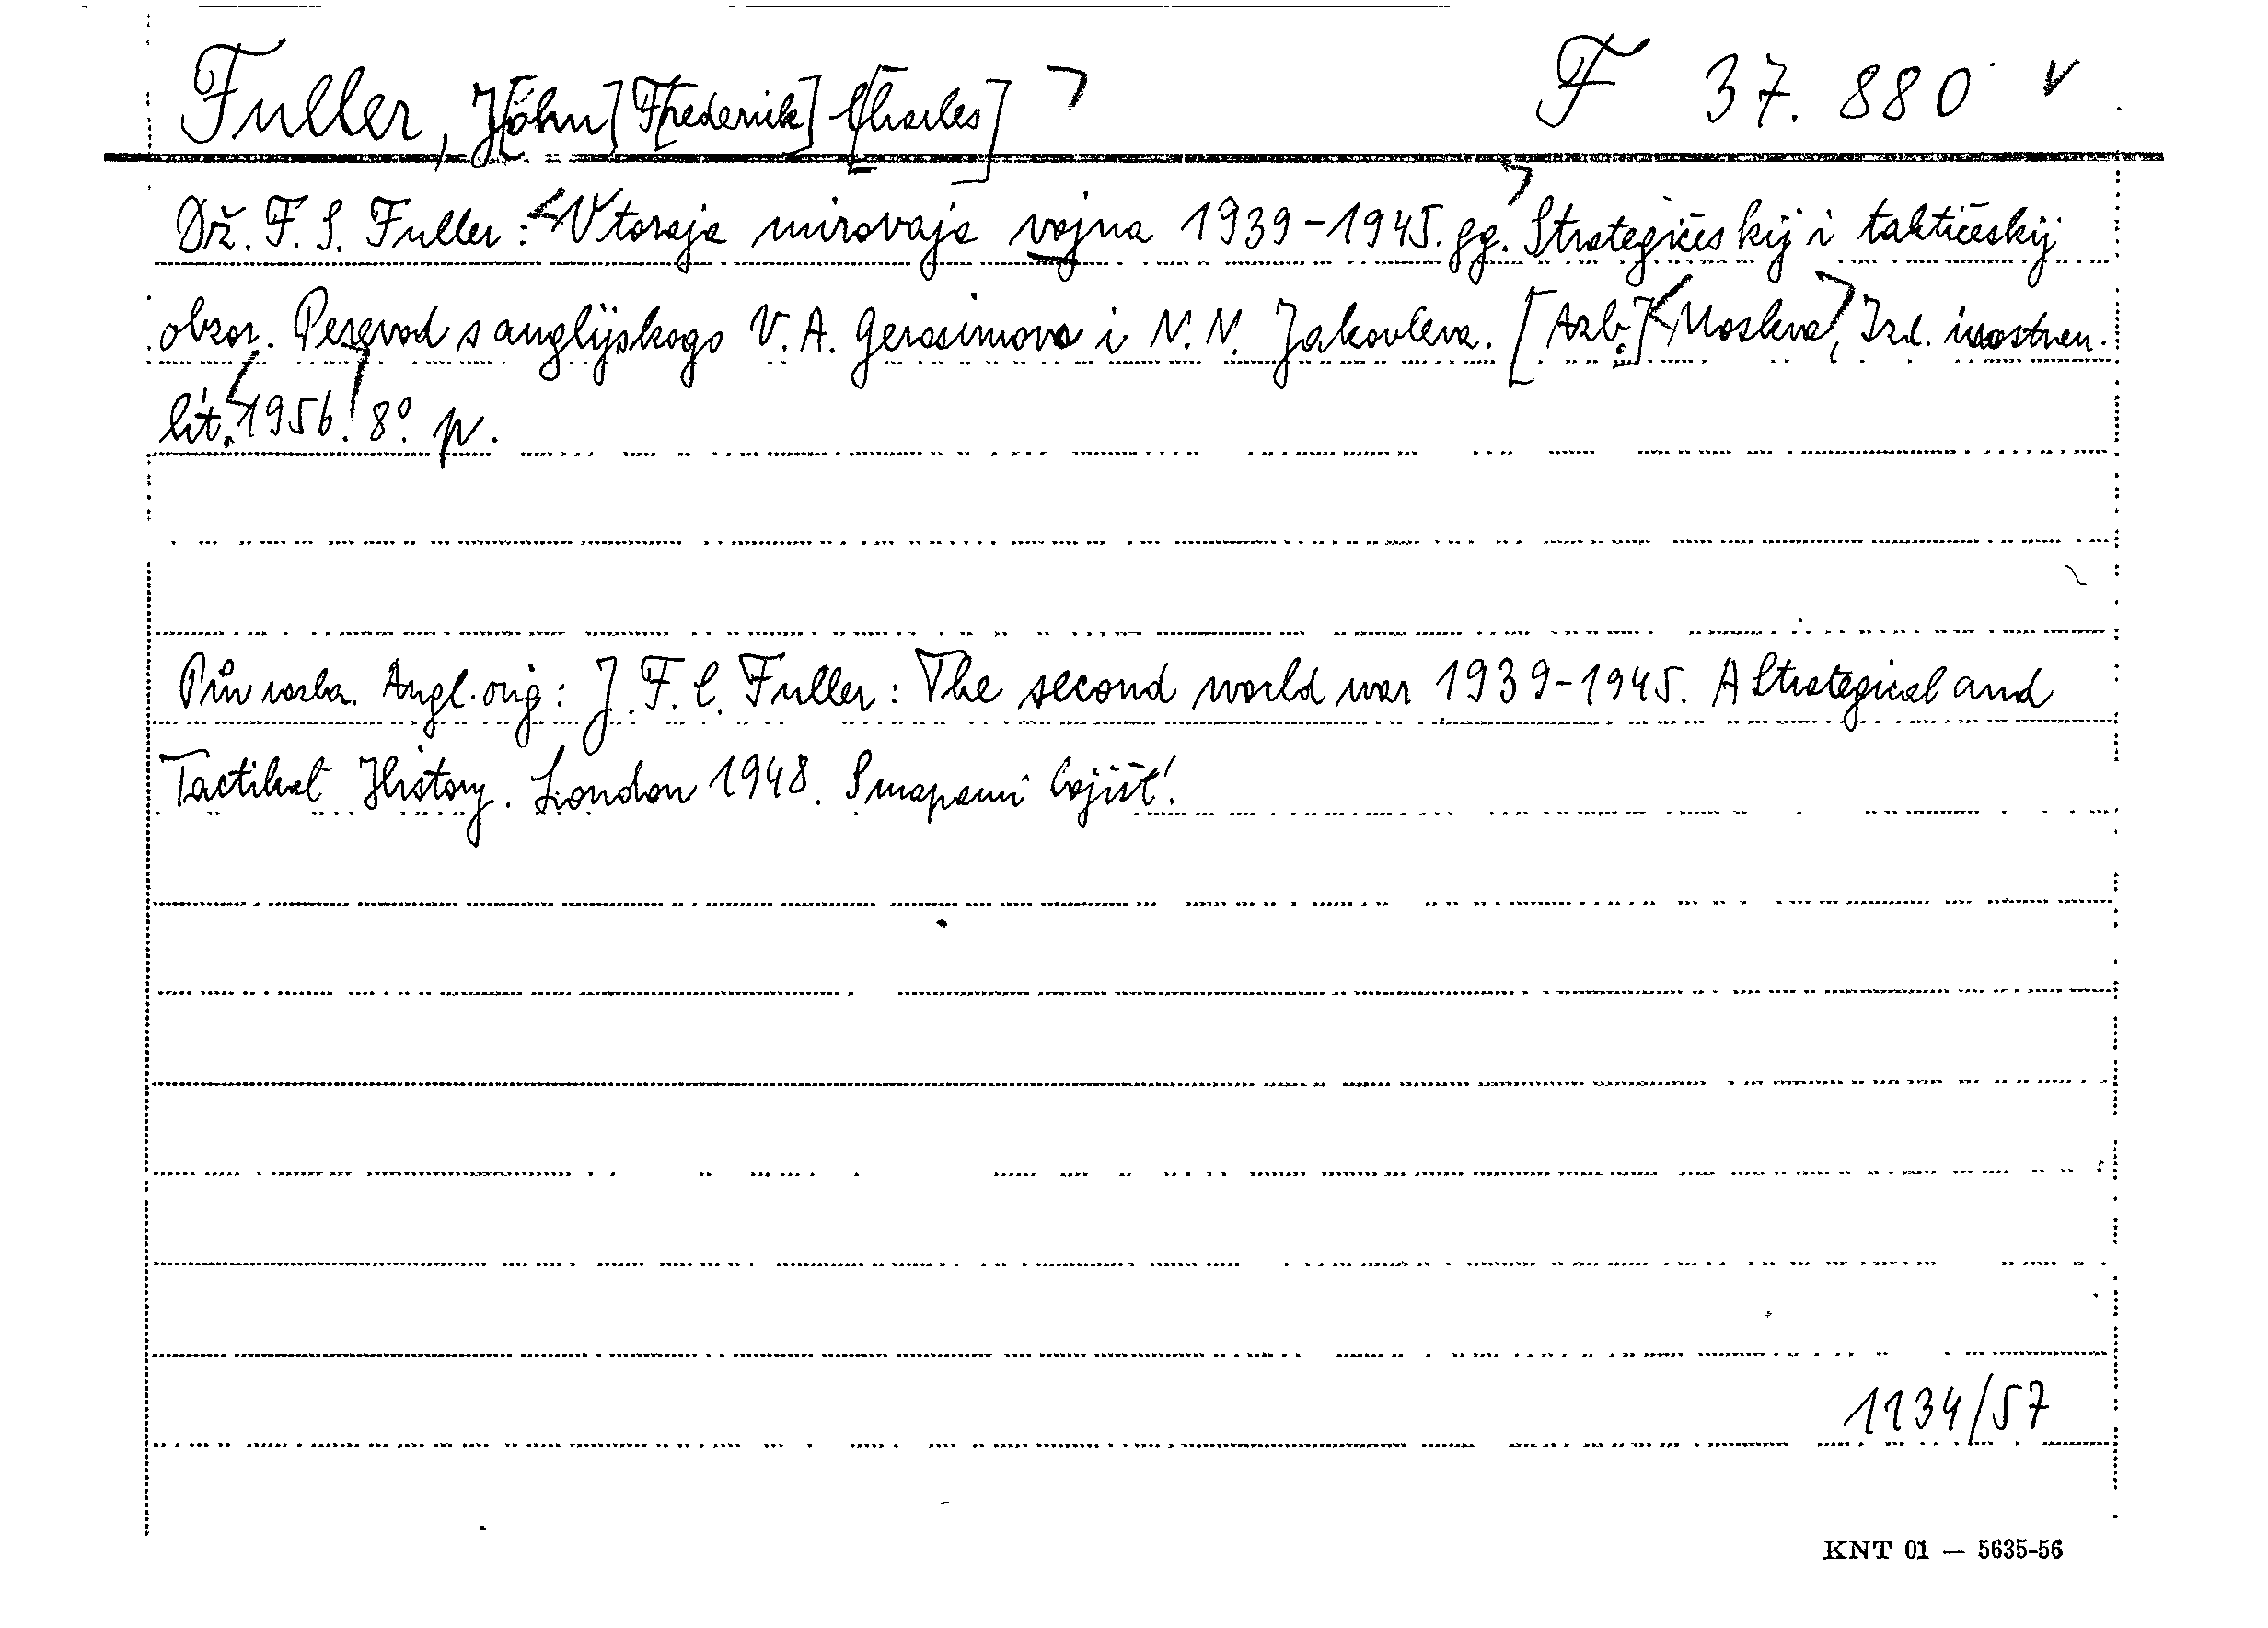 Fuller, J[ohn] F[rederick] C[harles] F 37.880 v
Dž. F. S. Fuller: Vtoraja mirovaja vojna 1939-1945. gg. Strategičeskij i taktičeskij
obzor. Perevod s anglijskogo V. A. Gerasimova i N. N. Jakovleva. [Azb.] Moskva, Izd. inostren.
lit. 1956. 8°. p.
Pův vazba. Angl. orig: J. F. C. Fuller: The second world war 1939-1945. A Strategical and
Tactikal History. London 1948. S mapami bojišť.
1134/57
KNT 01 — 5635-56